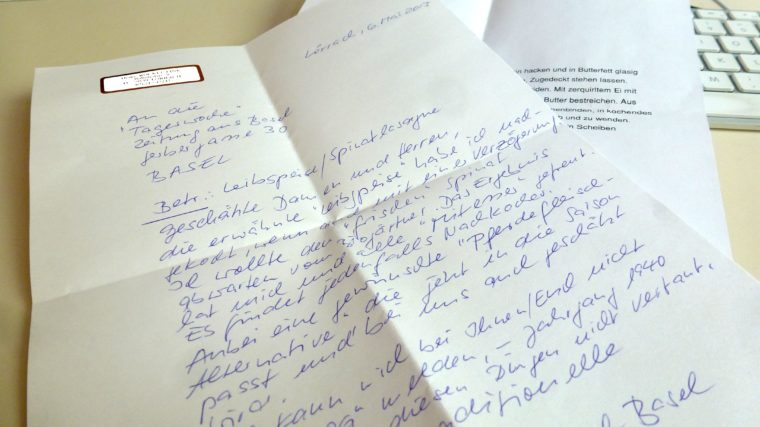 Lörrach, 6. Mai 2013
An die
"Tageswoche"
Zeitung aus Basel
Gerbergasse 30
BASEL
Betr.: Leibspeise/Spinatlasagne
geschätzte Damen und Herren,
die erwähnte "Leibspeise" habe ich nach-
gekocht, wenn auch mit einer Verzögerung.
Ich wollte den "frischen" Spinat
abwarten vom Biogärtner. Das Ergebnis
hat mich und alle "Mitesser" gefreut.
Es findet jedenfalls Nachkocher.
Anbei eine gewünschte "Pferdefleisch-
Alternative", die jetzt in die Saison
passt und bei uns auch geschätzt
wird.
kann mich bei Ihnen/Euch nicht
melden, - Jahrgang 1940
diesen Dingen nicht vertraut.
Basel
n hacken und in Butterfett glasig
Zugedeckt stehen lassen.
iden. Mit zerquirltem Ei mit
Butter bestreichen. Aus
nenbinden, in kochendes
b und zu wenden.
n Scheiben